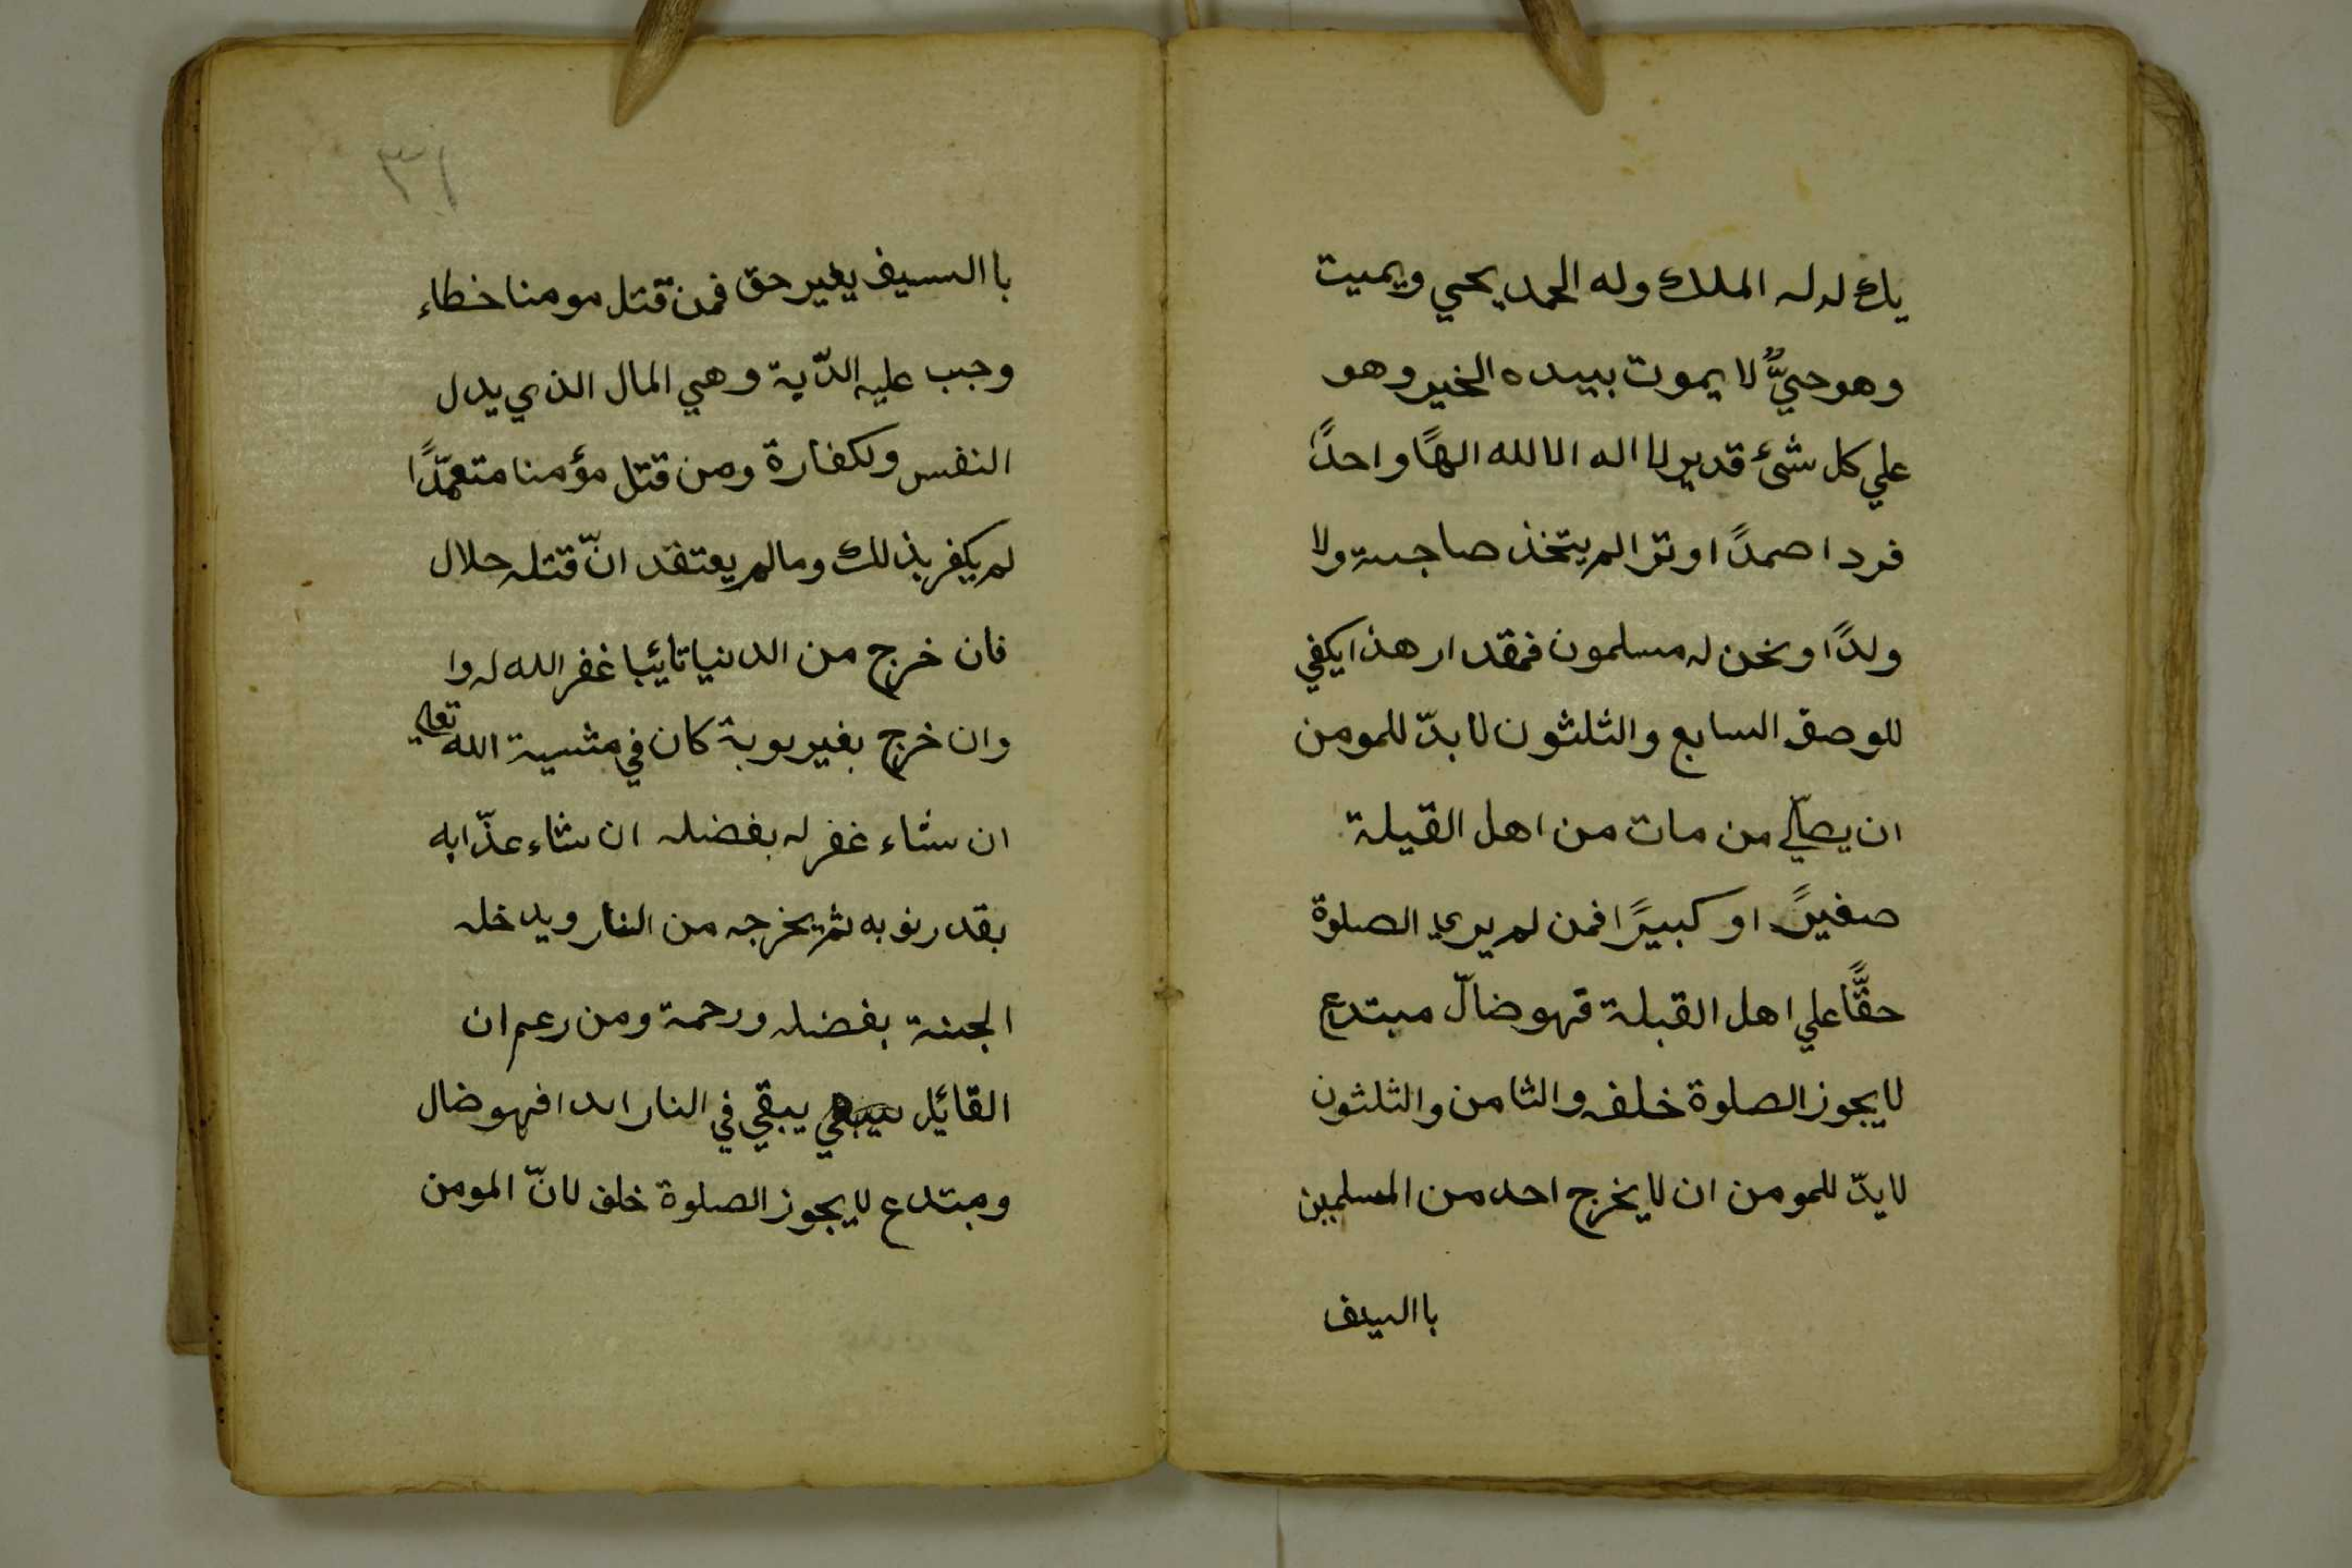 يك له له الملك وله الحمد يحي ويميت
وهو حيٌّ لا يموت بيده الخير وهو
علي كل شئ قدير لا اله الا الله الهًا واحدًا
فردا صمدًا وترا لم يتخذ صاحبة ولا
ولدًا ونحن له مسلمون فمقدار هذا يكفي
للوصف السابع والثلثون لا بدّ للمومن
ان يصلّي من مات من اهل القيلة
صغيرً او كبيرًا فمن لم يري الصلوة
حقًّا علي اهل القبلة فهو ضالّ مبتدع
لا يجوز الصلوة خلفه والثامن والثلثون
لا يدّ للمومن ان لا يخرج احد من المسلمين
با السيف
٣١
با السيف يغير حق فمن قتل مومنا خطاء
وجب عليه الدّية وهي المال الذي يدل
النفس ولكفارة ومن قتل مؤمنا متعمّدًا
لم يكفر بذلك وما لم يعتقد انّ قتله حلال
فان خرج من الدنيا تائيبا غفر الله له وا
وان خرج بغير بوبة كان في مشيية الله تعلي
ان شاء غفر له بفضله ان شاء عذّابه
بقدر نوبه ثم يخرجه من النار ويدخله
الجنة بفضله ورحمة ومن رعم ان
القائيل يبقي في النار ابدا فهو ضال
ومبتدع لا يجوز الصلوة خلف لانّ المومن